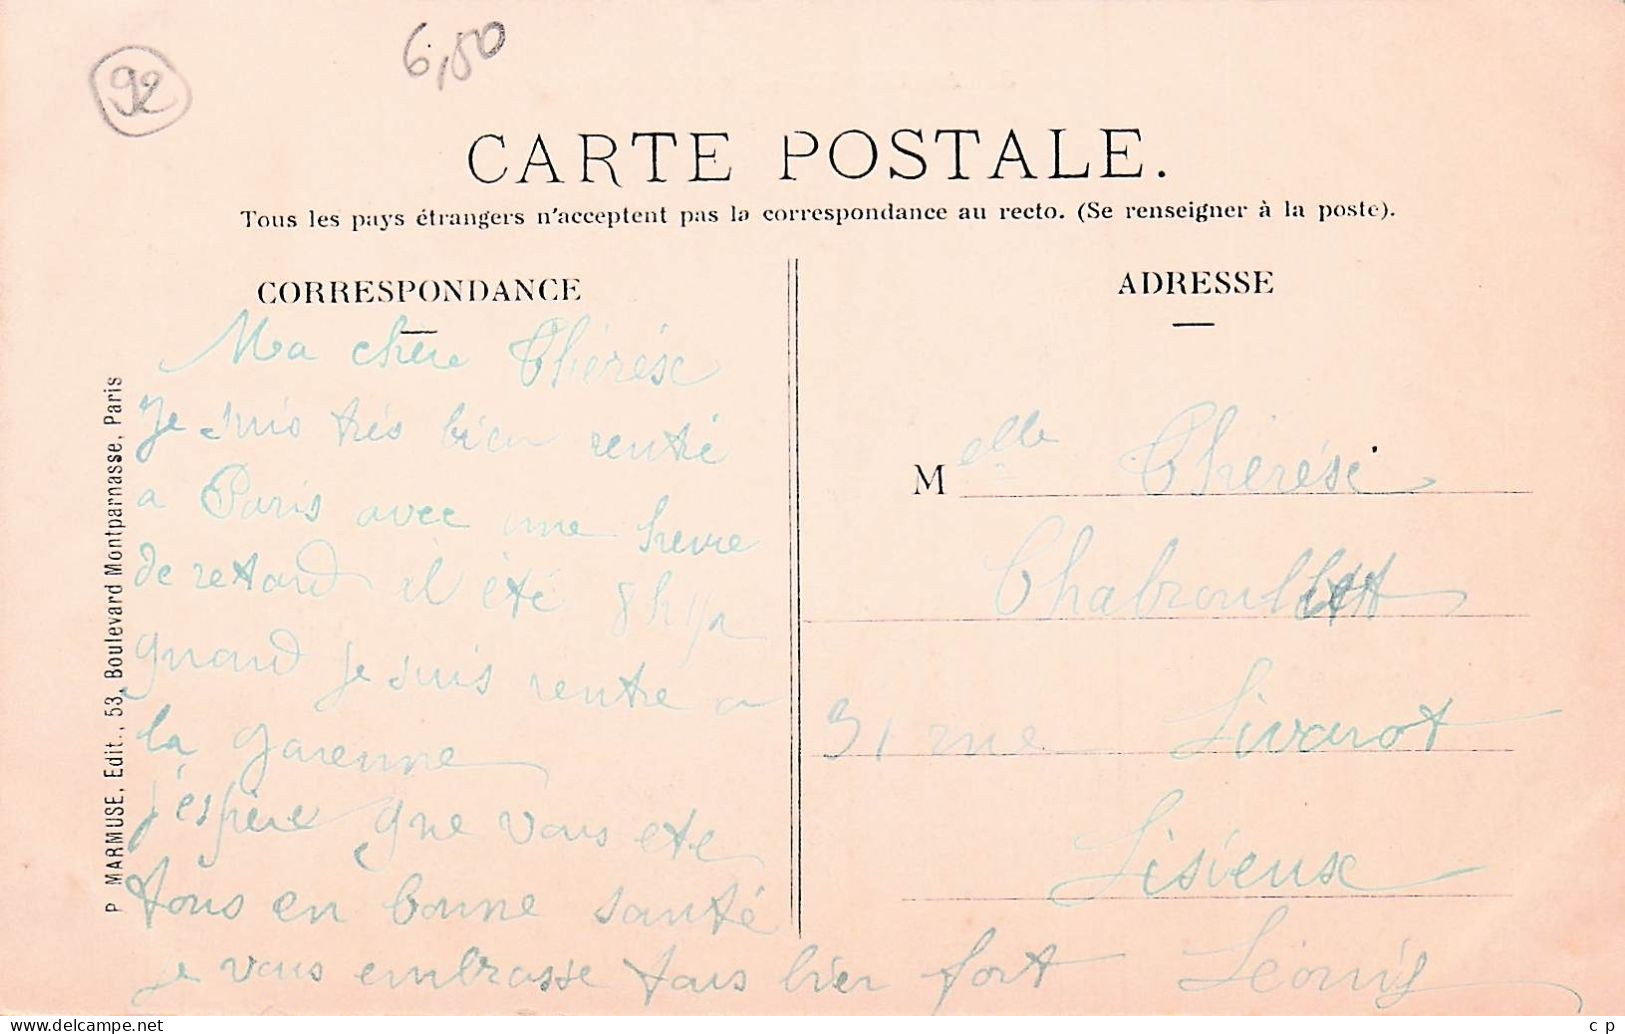 92
6,50
CARTE POSTALE.
Tous les pays étrangers n'acceptent pas la correspondance au recto. (Se renseigner à la poste).
CORRESPONDANCE
Ma chère Thérèse
Je suis très bien rentré
a Paris avec une heure
de retard il été 8h 1/2
quand je suis rentre a
la garenne
j'espère que vous ete
tous en bonne santé
je vous embrasse tous bien fort Léonis
ADRESSE
Melle Thérèse
31 rue Livarot
Lisieux
P MARMUSE, Edit., 53, Boulevard Montparnasse, Paris
c p